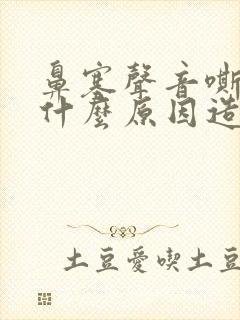 鼻塞聲音嘶
什麼原因造
土豆愛喫土豆